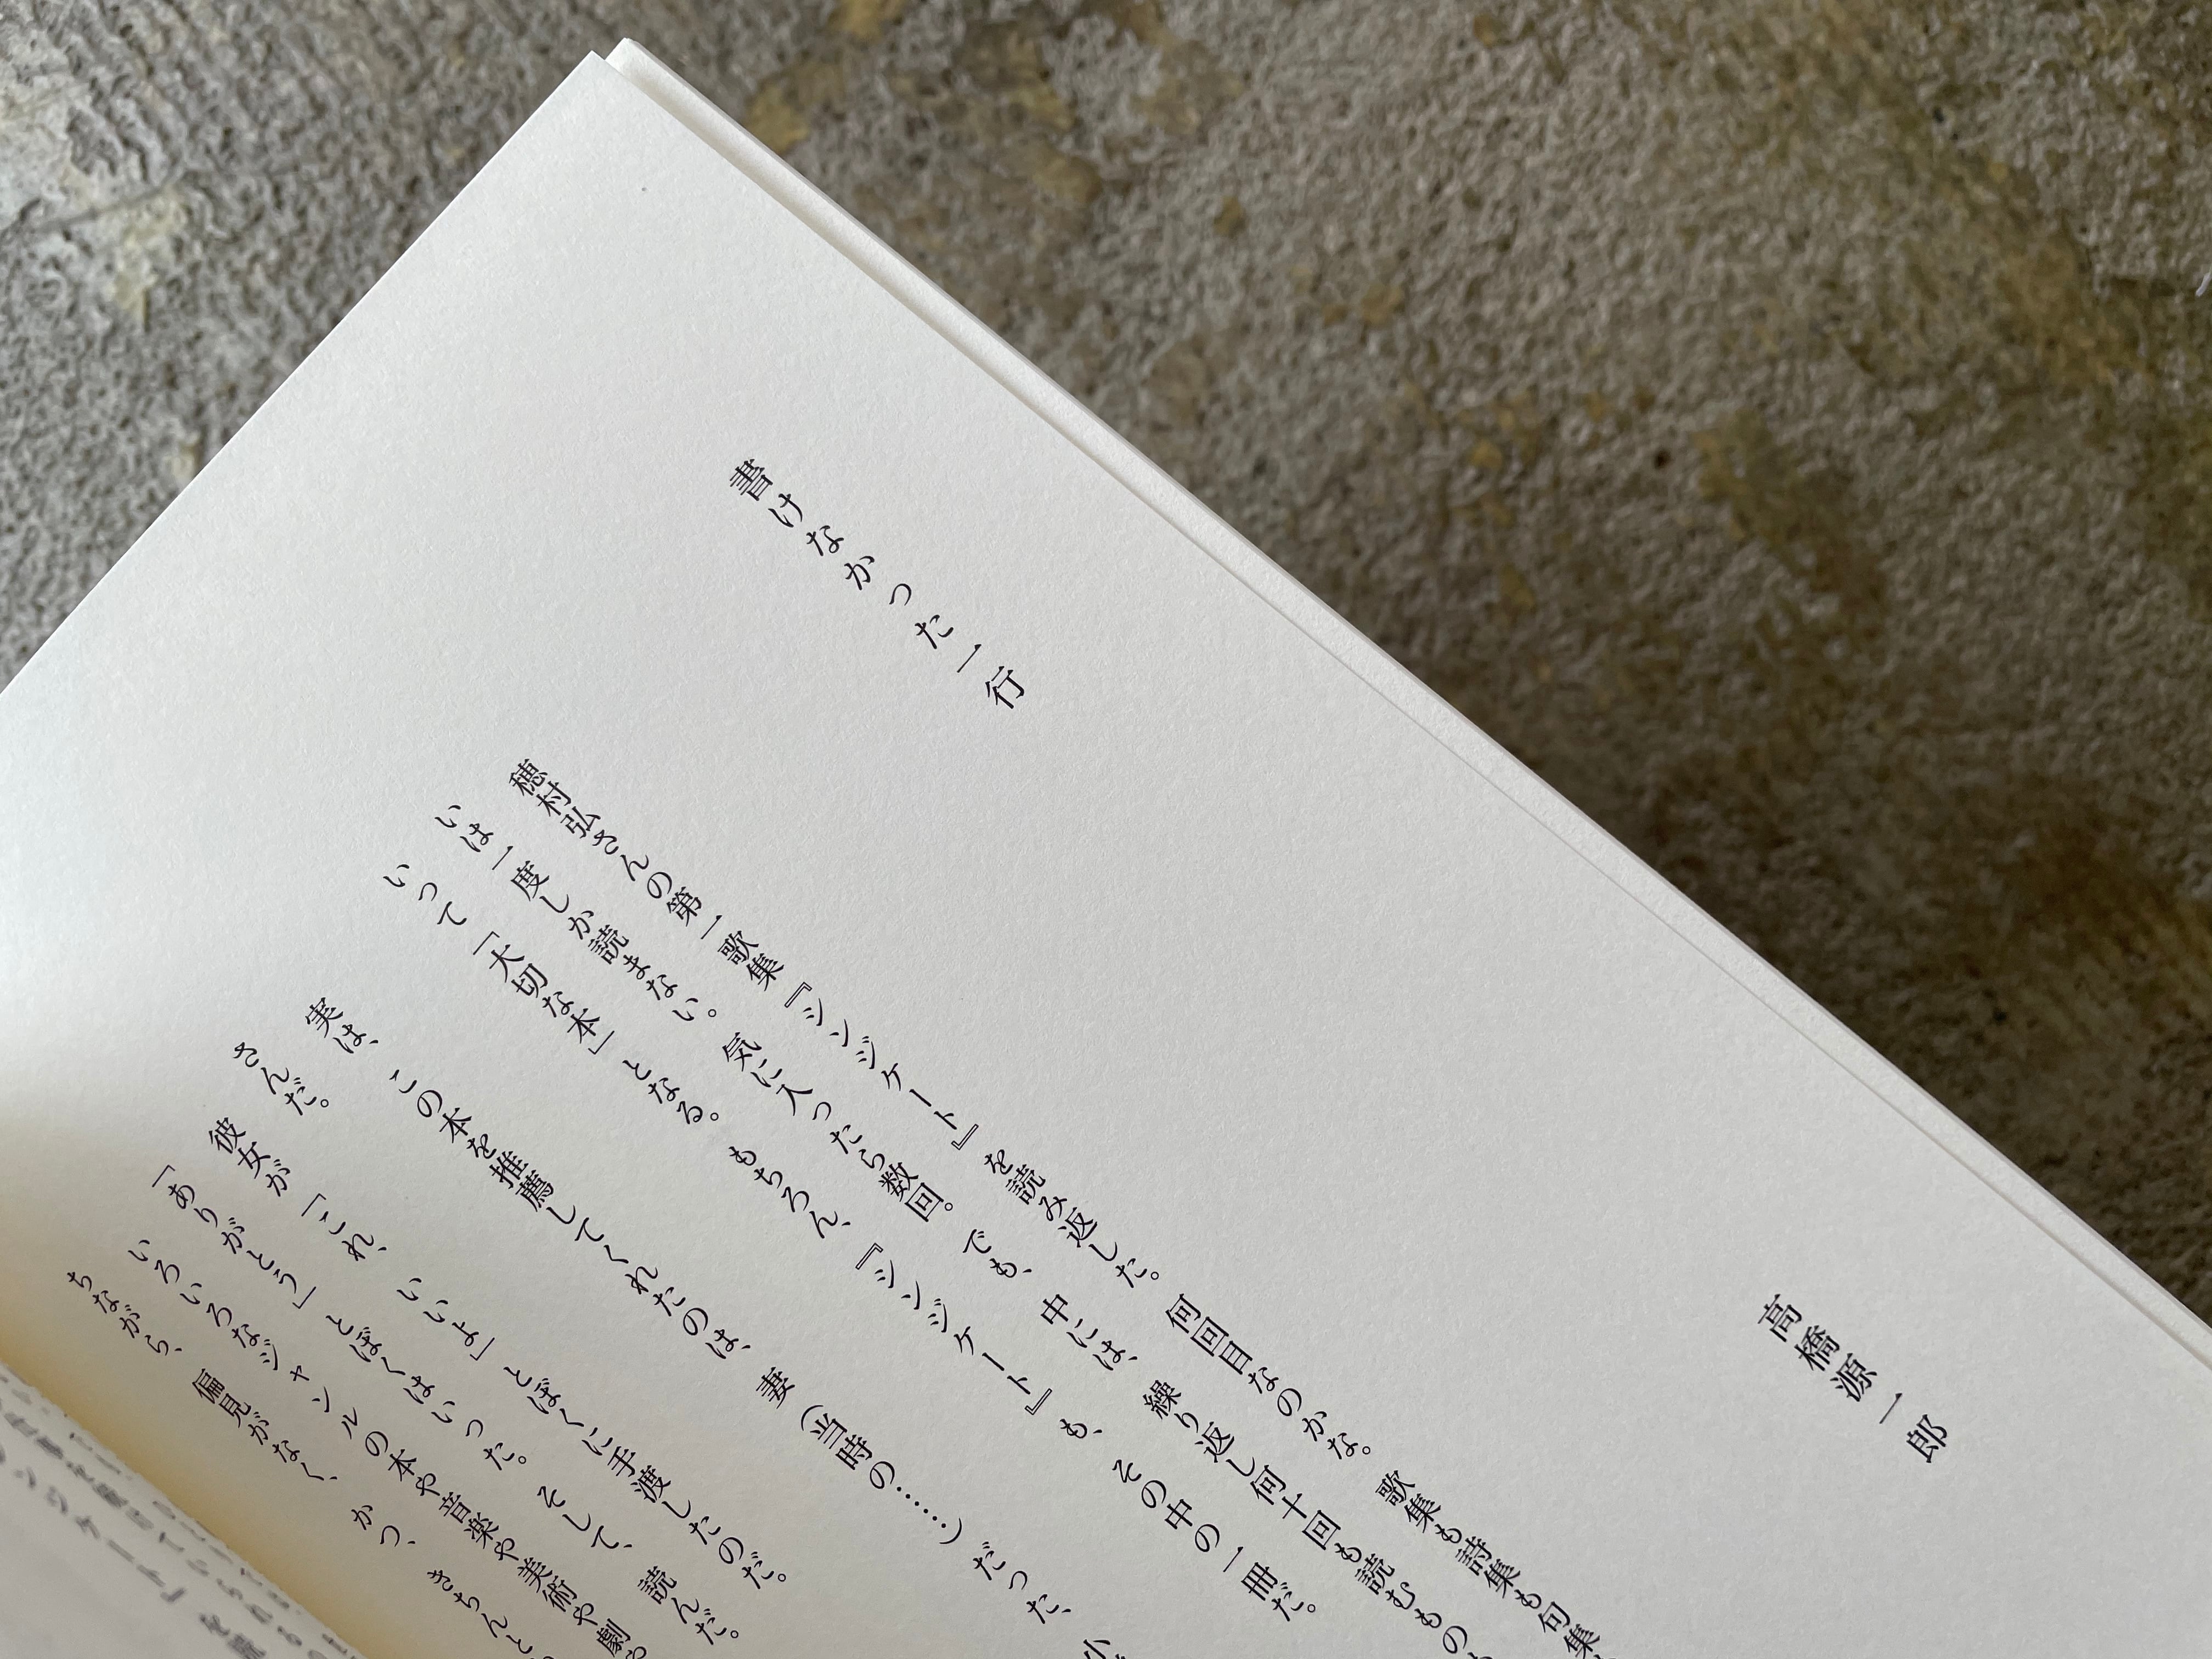 書けなかった一行
高橋源一郎
穂村弘さんの第一歌集『シンジケート』を読み返した。何回目なのかな。歌集も詩集も句集
いは一度しか読まない。気に入ったら数回。でも、中には、繰り返し何十回も読むもの
いって「大切な本」となる。もちろん、『シンジケート』も、その中の一冊だ。
実は、この本を推薦してくれたのは、妻(当時の……)だった、小
さんだ。彼女が「これ、いいよ」とぼくに手渡したのだ。
「ありがとう」とぼくはいった。そして、読んだ。
いろいろなジャンルの本や音楽や美術や劇
ちながら、偏見がなく、かつ、きちんと